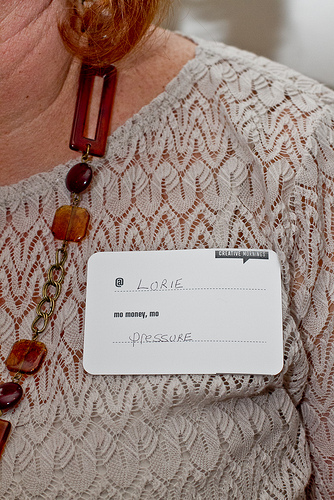 CREATIVE MORNINGS
@ LORIE
mo money, mo
pressure